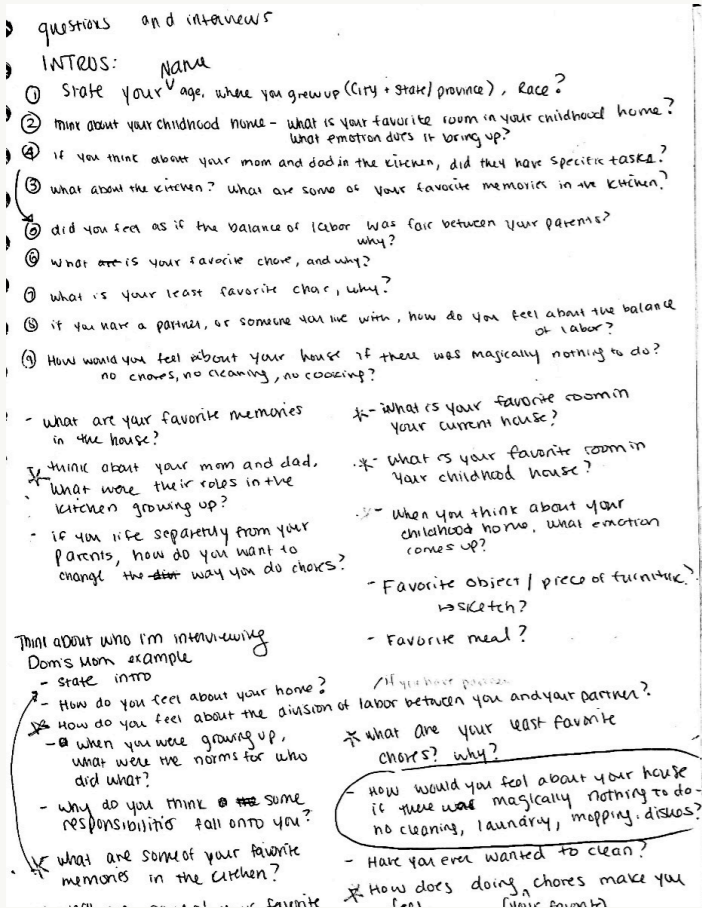 questions and interviews
INTROS:
① State your Name age, where you grew up (City + State/province), Race?
② Think about your childhood home - what is your favorite room in your childhood home?
what emotion does it bring up?
④ if you think about your mom and dad in the kitchen, did they have specific tasks?
③ what about the kitchen? what are some of your favorite memories in the kitchen?
⑤ did you feel as if the balance of labor was fair between your parents?
why?
⑥ what are is your favorite chore, and why?
⑦ what is your least favorite chor, why?
⑧ if you have a partner, or someone you live with, how do you feel about the balance
of labor?
⑨ How would you feel about your house if there was magically nothing to do?
no chores, no cleaning, no cooking?
- what are your favorite memories
in the house?
* think about your mom and dad.
what were their roles in the
kitchen growing up?
- if you life separetly from your
parents, how do you want to
change the way you do chores?
*- what is your favorite room in
your current house?
*- what is your favorite room in
your childhood house?
- when you think about your
childhood home, what emotion
comes up?
- Favorite object / piece of furniture?
↳ sketch?
- Favorite meal?
Think about who i'm interviewing
Dom's Mom example
- state intro
- How do you feel about your home?
/if you have partner
* How do you feel about the division of labor between you and your partner?
- when you were growing up,
what were the norms for who
did what?
- why do you think the some
responsibilities fall onto you?
* what are some of your favorite
memories in the kitchen?
* what are your least favorite
chores? why?
- How would you feel about your house
if there was magically nothing to do-
no cleaning, laundry, mopping, dishes?
- Have you ever wanted to clean?
* How does doing chores make you
feel (your favorite)
favorite